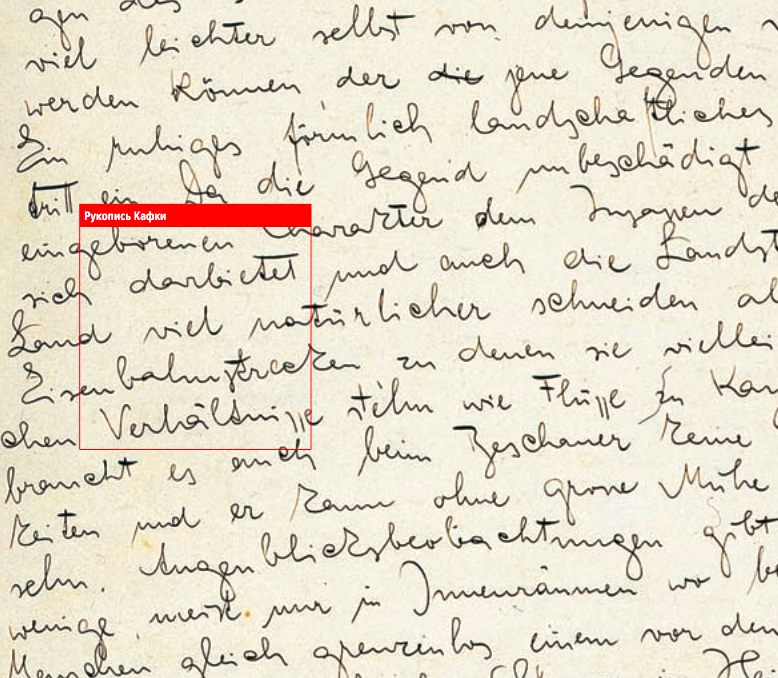 gen des
viel leichter selbst von demjenigen
werden können der die jene Gegenden
Ein ruhiges förmlich landschaftliches
tritt ein Da die Gegend unbeschädigt
Рукопись Кафки
eingeborenen Charakter dem Insassen
sich darbietet und auch die Landst
Land viel natürlicher schneiden al
Eisenbahnstrecken zu denen sie viellei
chen Verhältnisse stehn wie Flüsse zu Kan
braucht es auch beim Beschauer keine
keiten und er kann ohne grosse Mühe
sehn. Augenblicksbeobachtungen gibt
wenige, meist nur in Innenräumen wo be
Menschen gleich grenzenlos einem vor den